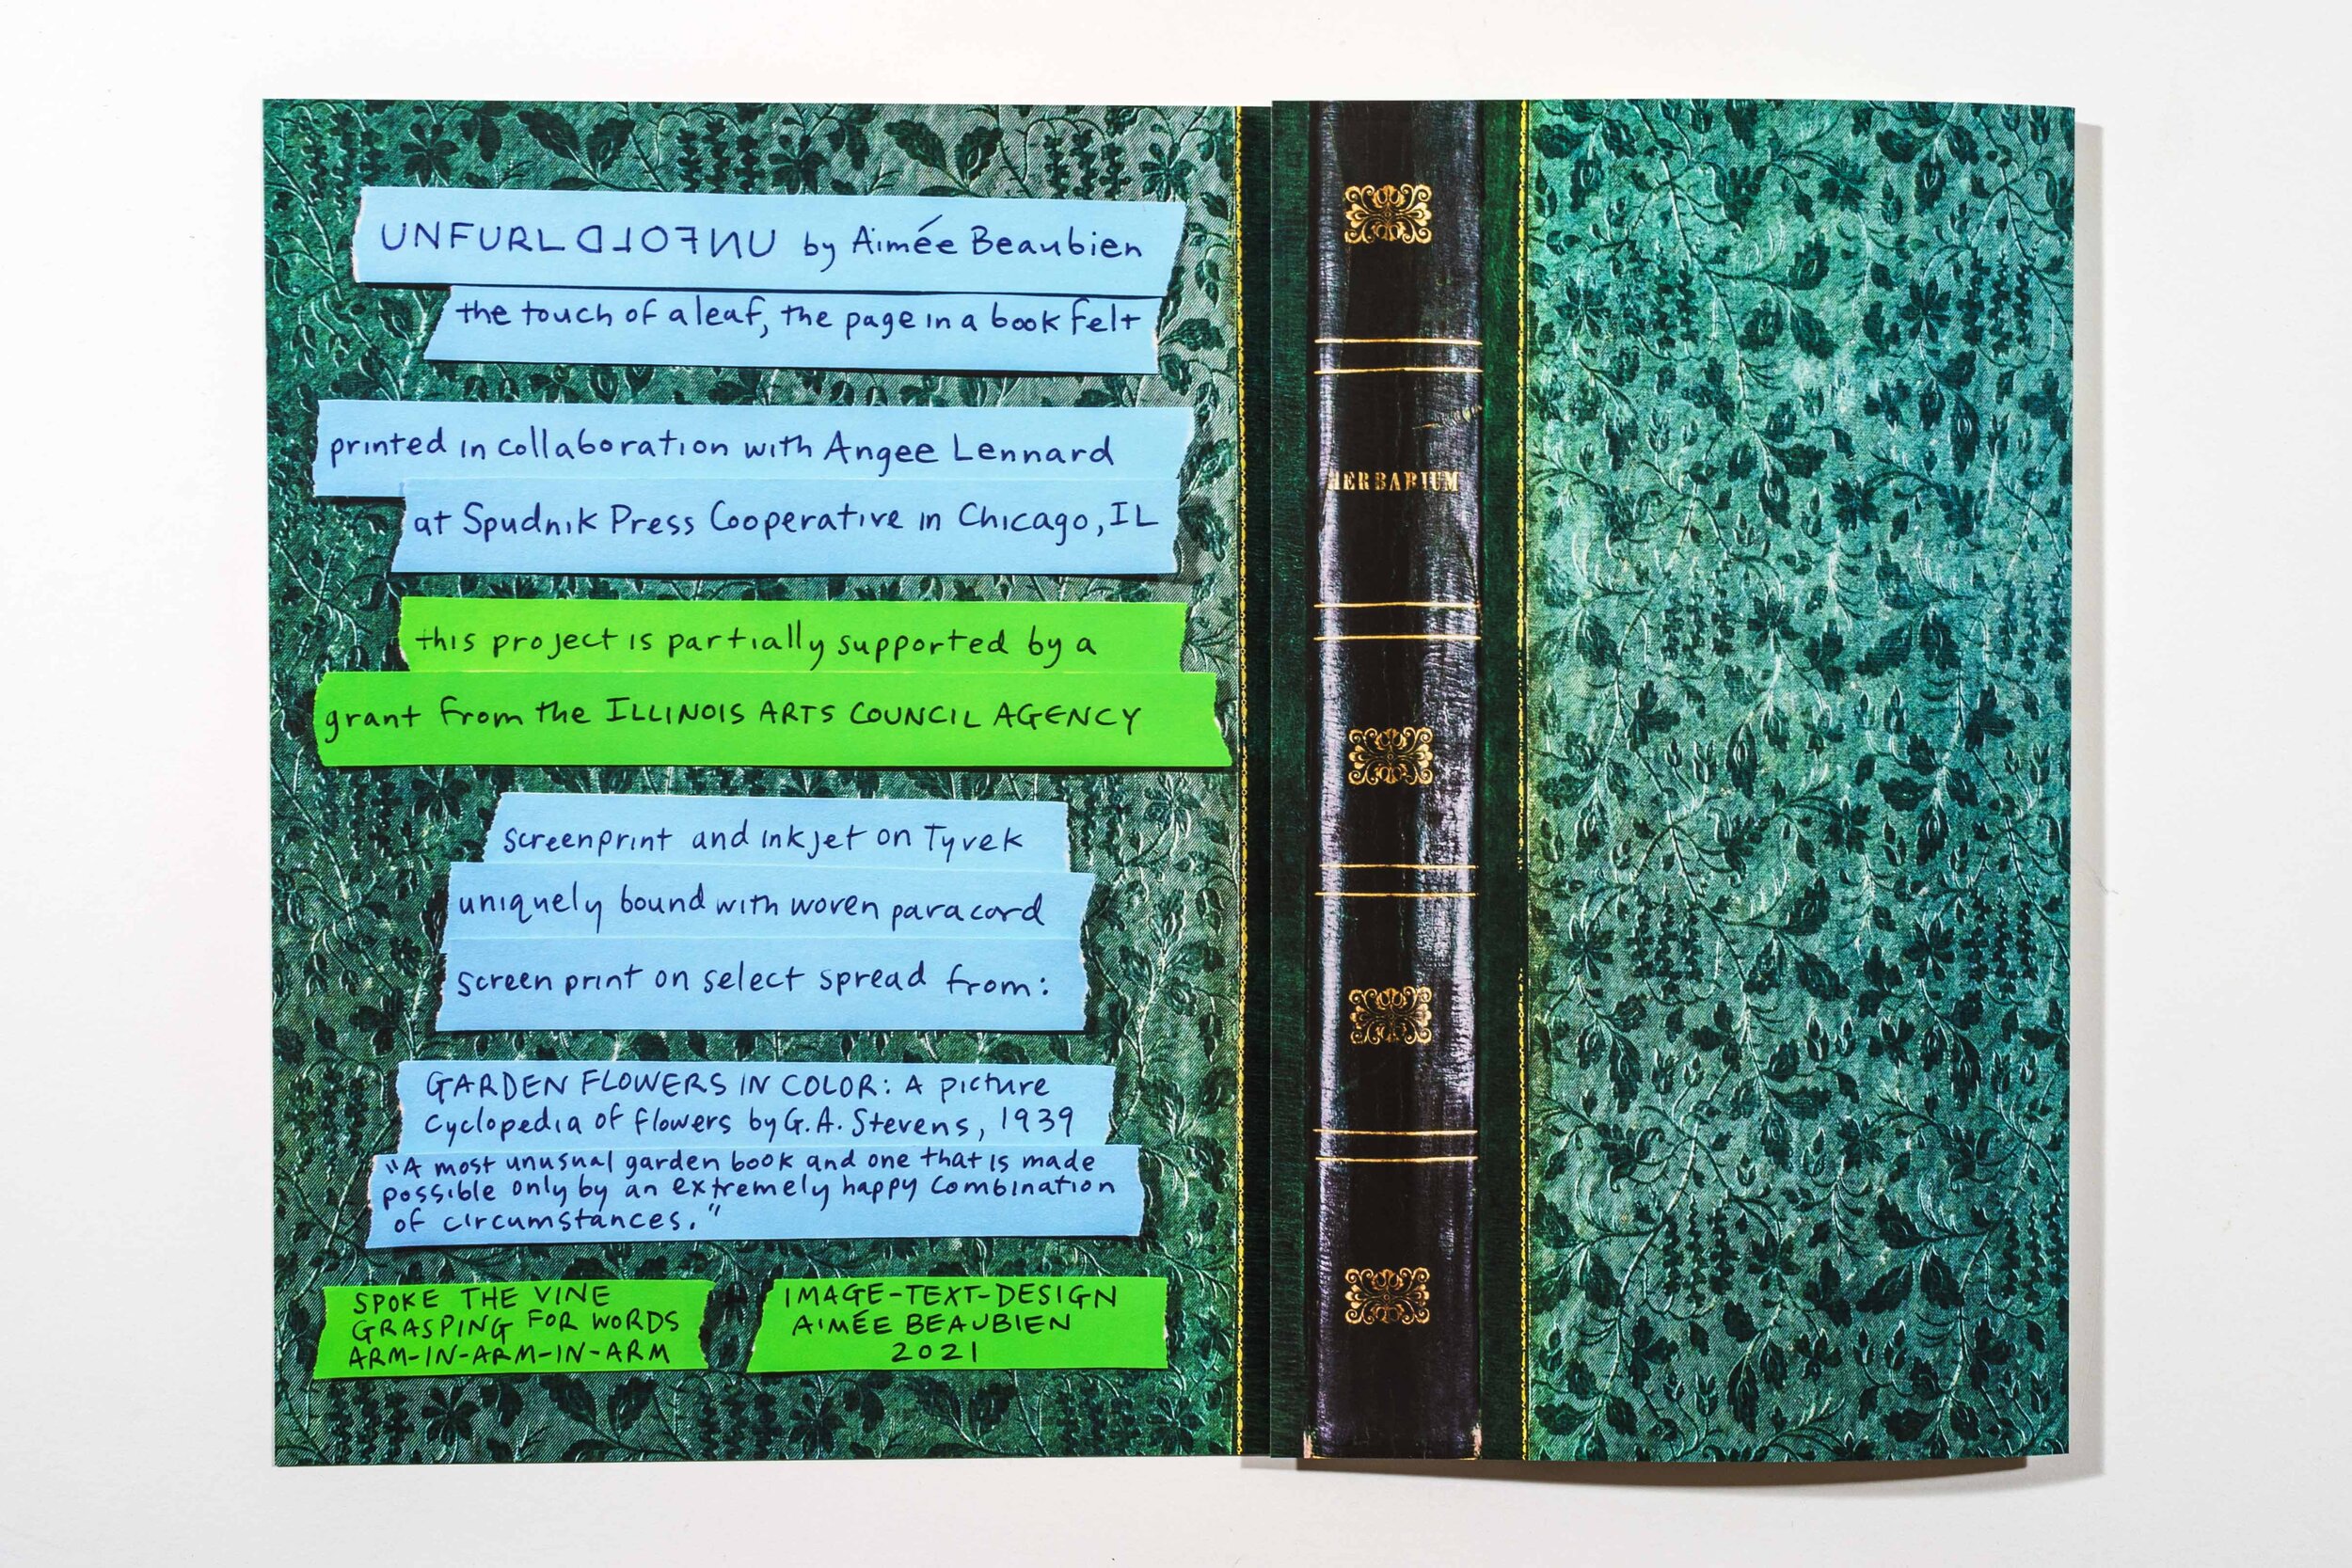 UNFURL DLOFNU by Aimée Beaubien
the touch of a leaf, the page in a book felt
printed in collaboration with Angee Lennard
at Spudnik Press Cooperative in Chicago, IL
this project is partially supported by a
grant from the ILLINOIS ARTS COUNCIL AGENCY
screenprint and inkjet on Tyvek
uniquely bound with woven paracord
screen print on select spread from:
GARDEN FLOWERS IN COLOR: A picture
cyclopedia of flowers by G. A. Stevens, 1939
"A most unusual garden book and one that is made
possible only by an extremely happy combination
of circumstances."
SPOKE THE VINE
GRASPING FOR WORDS
ARM-IN-ARM-IN-ARM
IMAGE-TEXT-DESIGN
AIMÉE BEAUBIEN
2021
HERBARIUM